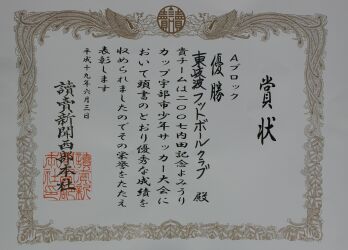 賞状
Aブロック
優勝
東岐波フットボールクラブ殿
貴チームは二〇〇七内田記念よみうり
カップ宇部市少年サッカー大会に
おいて頭書のとおり優秀な成績を
収められましたのでその栄誉をたたえ
表彰します
平成十九年六月三日
讀賣新聞西部本社